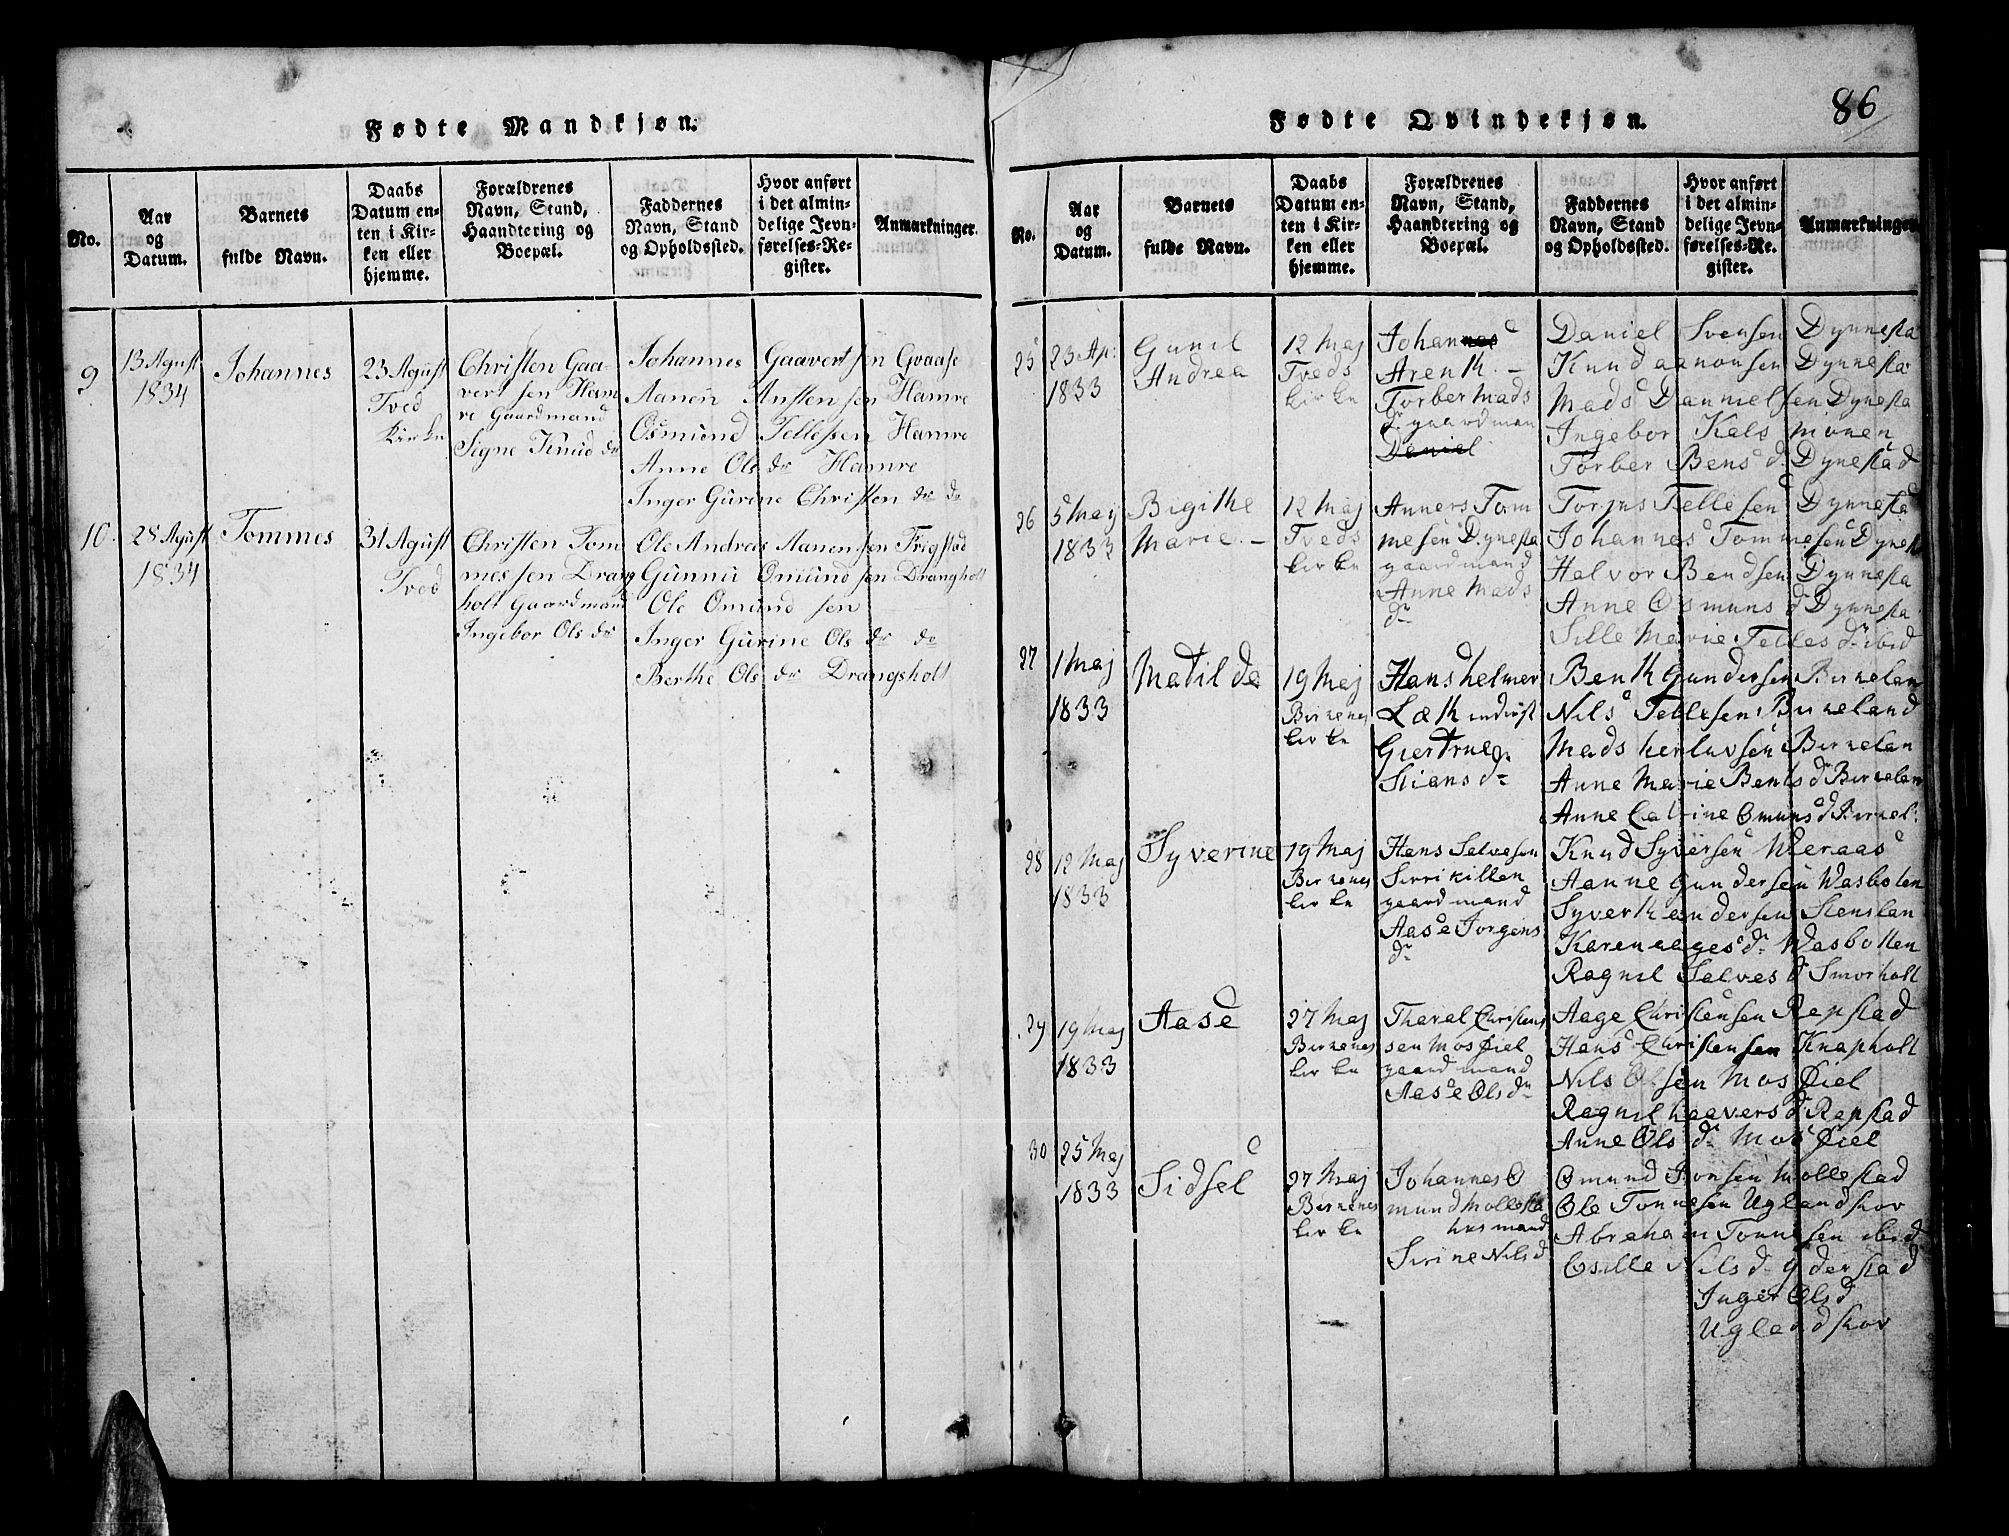 Fødte Mandkjøn.
No.
Aar
og
Datum.
Barnets
fulde Navn.
Daabs
Datum en-
ten i Kir-
ken eller
hjemme.
Forældrenes
Navn, Stand,
Haandtering og
Boepæl.
Faddernes
Navn, Stand
og Opholdssted.
Hvor anført
i det almin-
delige Jevn-
førelses-Re-
gister.
Anmærkninger.
9
13 Agust
1834
Johannes
23 Agust
Tved
Kirke
Christen Gaa-
vert sen Ham
re Gaardmand
Signe Knud dr
Johannes Gaavert sen Gvaase
Aanen Ansten sen Hamre
Osmund Tellessen Hamre
Anne Ols dr Hamre
Inger Gurine Christen dr do
10.
28 Agust
1834
Tommes
31 Agust
Tved
Christen Tom
mes sen Drang
holt Gaardmand
Ingebor Ols dr
Ole Andreas Aanen sen Frigstad
Gunnu Omund sen Drangholt
Ole Omund sen
Inger Gurine Ols dr do
Berthe Ols dr Drangsholt
86
Fødte Qvindekjøn.
No.
Aar
og
Datum.
Barnets
fulde Navn.
Daabs
Datum en-
ten i Kir-
ken eller
hjemme.
Forældrenes
Navn, Stand,
Haandtering og
Boepæl.
Faddernes
Navn, Stand
og Opholdssted.
Hvor anført
i det almin-
delige Jevn-
førelses-Re-
gister.
Anmærkninger
25
23 Ap:
1833
Gunil
Andrea
12 Maj
Tveds
kirke
Johannes
Arenth. -
Torber Mads
dr gaardman
Daniel
Daniel Svensen Dynnesta
Knud aanonsen Dynnesta
Mads Danniel sen Dynesta
Ingebor Kels monen
Torber Bens d. Dynestad
26
5 Maij
1833
Bigithe
Marie. -
12 Maj
Tveds
kirke
Anners Tom
mesen Dynesta
gaardmand
Anne Mads
dr
Torjus Tellesen Dynnesta
Johannes Tommesen Dynest
Halvor Bendsen Dynnesta
Anne Osmuns d Dynnesta
Sille Marie Telles d. ibid
27
1 Maj
1833
Matilde
19 Maj
Birkenes
kirke
Hans helmer
Læth inderst
Giertrue
Stians dr
Benth Gundersen Birkelan
Nils Tellesen Birkeland
Mads herluvsen Birkelan
Anne Marie Bents d. Birkelan
Anne Catrine Omuns d Birkel:
28
12 Maj
1833
Syverine
19 Maj
Birkenes
kirke
Hans Salvesen
Sirrikillen
gaardmand
Aase Jorgens
dr
Knud Syversen Weraas
Aanne Gundersen Wasboten
Syverth andersen Stenslan
Karen aages d. Wasbotten
Ragnil Salves d Smorholt
29
19 Maj
1833
Aase
27 Maj
Birkenes
kirke
Tharal Christens
sen Mosfiel
gaardmand
Aase Ols dr
Aage Christensen Repstad
Hans Christensen Knapholt
Nils Olsen Mosfiel
Ragnil haavers d Repstad
Anne Ols d. Mosfiel
30
25 Maj
1833
Sidsel
27 Maj
Birkenes
kirke
Johannes O
mund Mollesta
husmand
Sirine Nils d
Omund Jonsen Mollestad
Ole Tonnesen Uglandskov
Abraham Tonnisen ibid
Osille Nils d.
Inger Ols d
Uglandskov